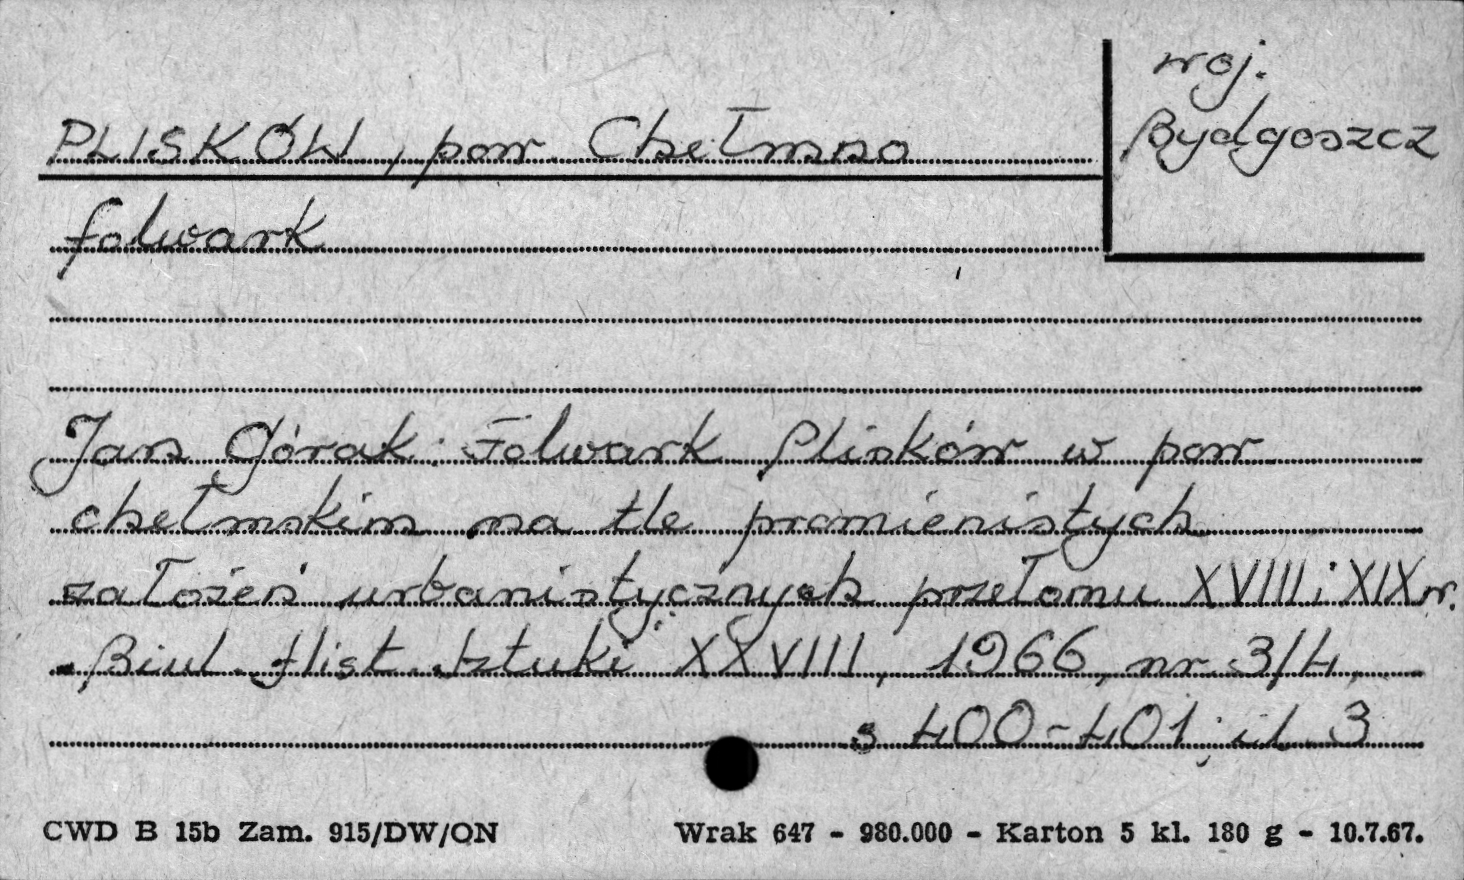 woj.
Bydgoszcz
PLISKÓW, pow. Chełmno
folwark
Jan Górak: Folwark Plisków w pow.
chełmskim na tle promienistych
założeń urbanistycznych przełomu XVIII i XIX w.
Biul. Hist. Sztuki XXVIII, 1966, nr 3/4,
s 400-401; il. 3
CWD B 15b Zam. 915/DW/ON Wrak 647 - 980.000 - Karton 5 kl. 180 g - 10.7.67.